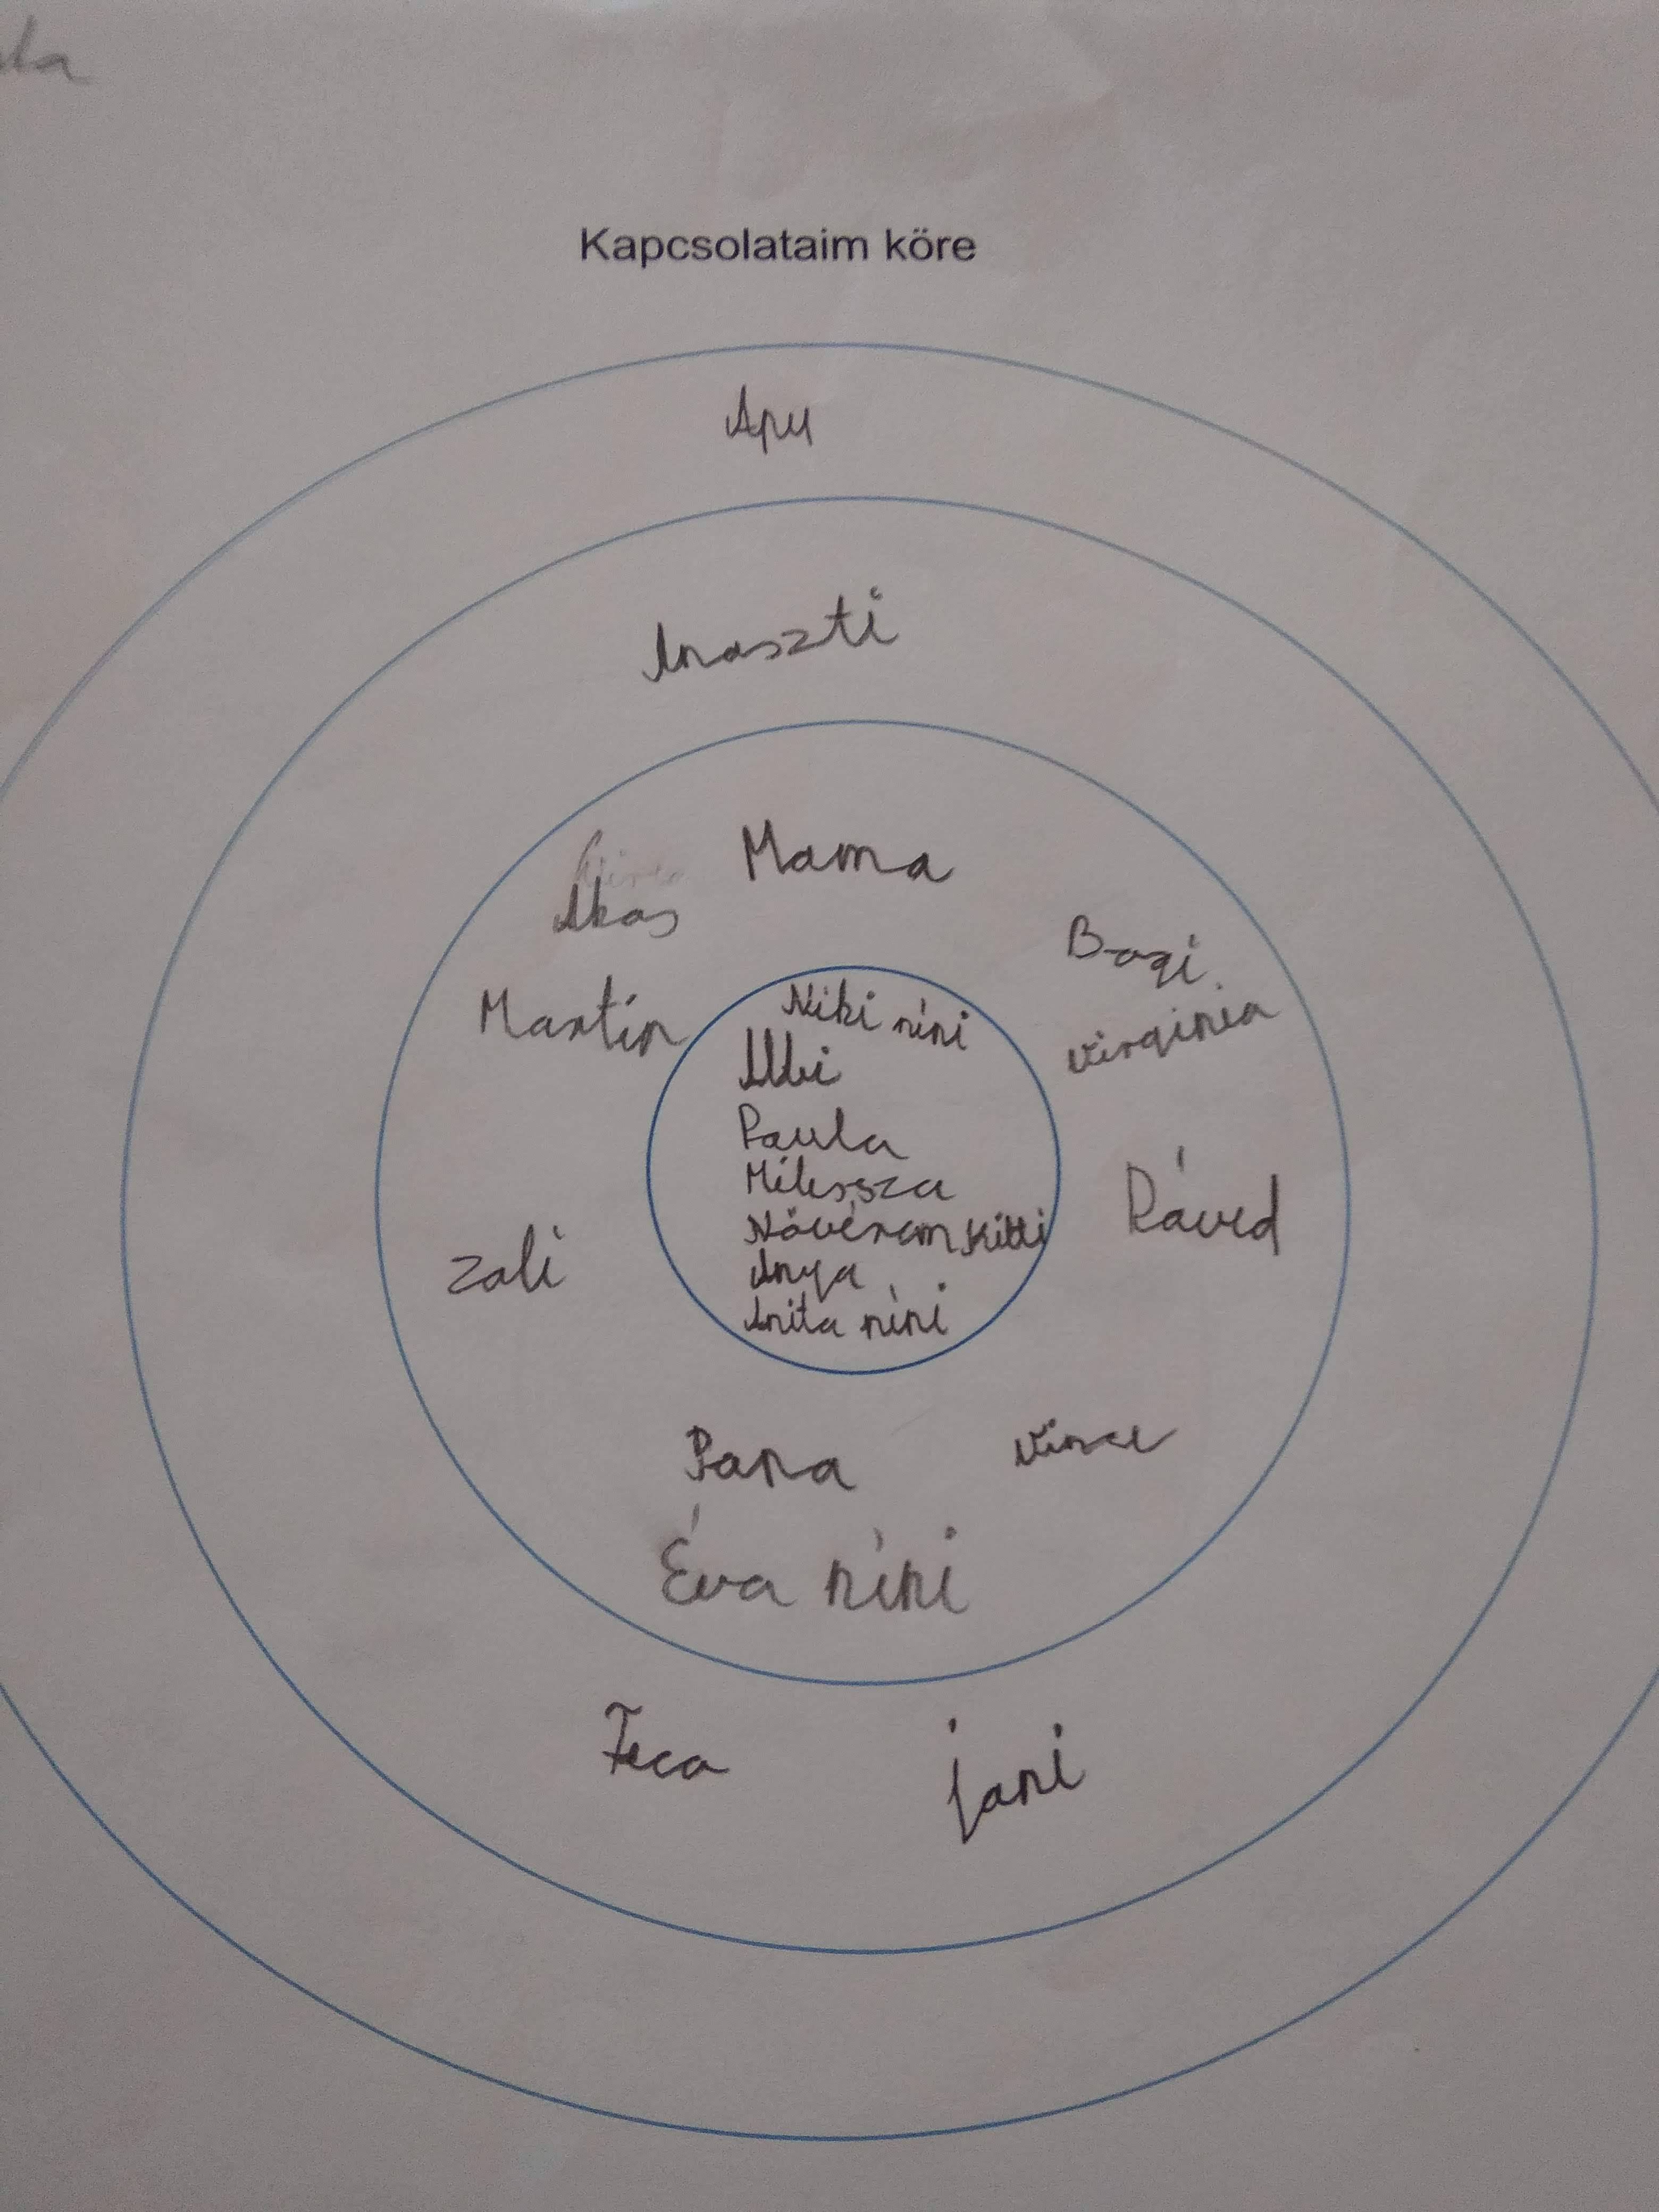 ula
Kapcsolataim köre
Apu
Anaszti
Mama
Ákos
Bogi
Martin
Virginia
Niki néni
Albi
Paula
Milessza
Nővérem Kitti
Anya
Anita néni
Dávid
Zali
Papa
Vince
Éva néni
Feca
jani